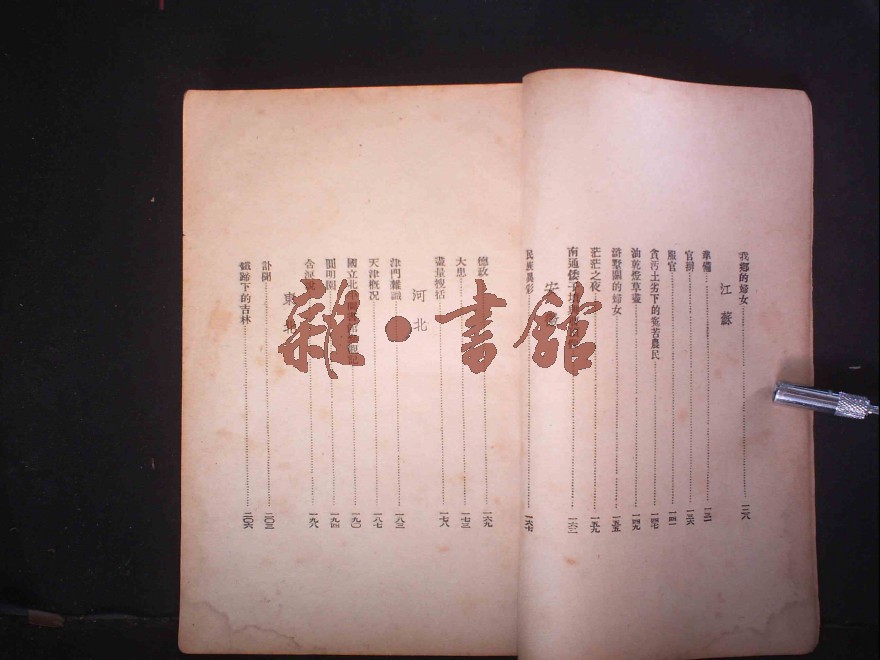 我鄉的婦女 一二八
江蘇
準備 一三一
官辦 一三六
服官 一四一
貪污土劣下的窮苦農民 一四七
油乾燈草盡 一四九
滸墅關的婦女 一五五
茫茫之夜 一五九
南通倭子墳 一六二
安
民族異彩 一六七
德政 一六九
大患 一七三
盡量搜括 一七八
河北
津門雜識 一八三
天津概况 一八七
國立北平 一九〇
圓明園 一九四
一九八
東北
訃聞 二〇三
鐵蹄下的吉林 二〇六
雜·書館